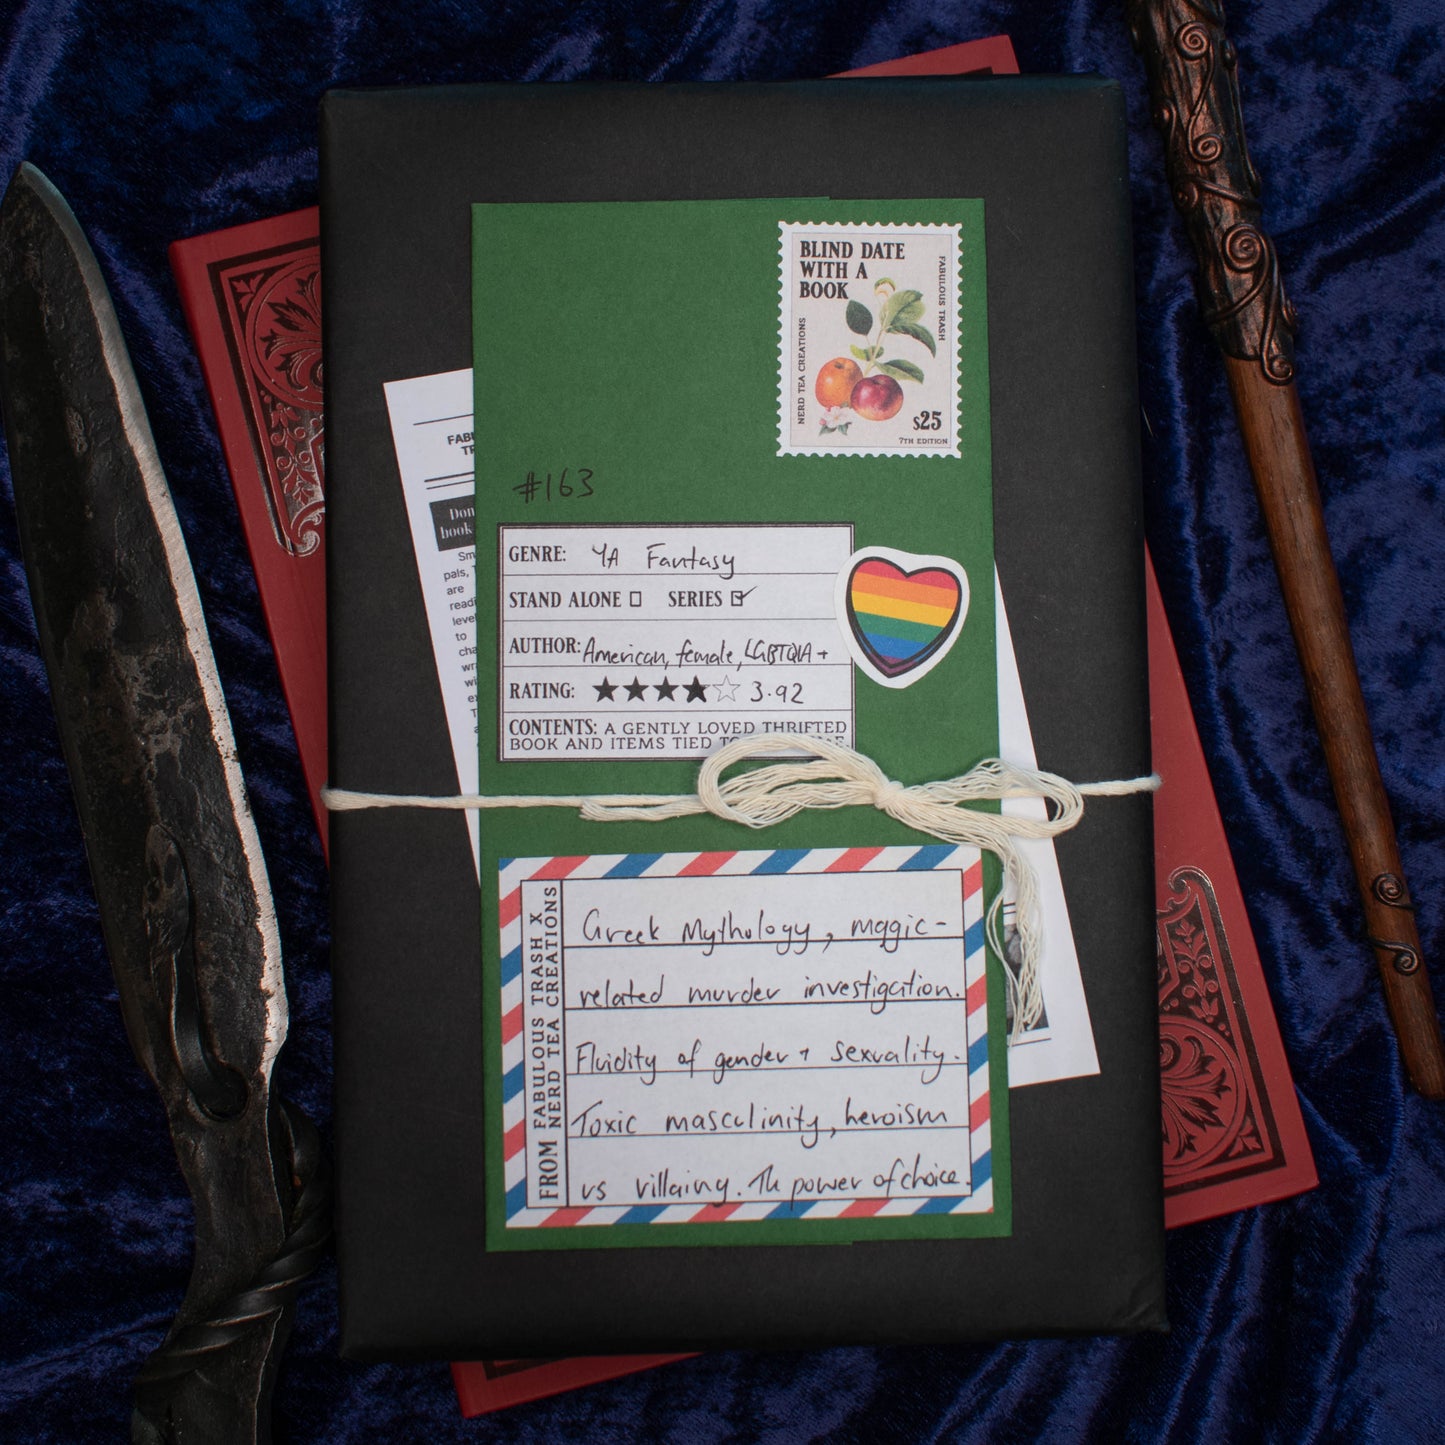 BLIND DATE
WITH A
BOOK
FABULOUS TRASH
NERD TEA CREATIONS
$25
7TH EDITION
FABU
TR
Don
book
Sm
pals, T
are
readi
level
to
cha
wr
wi
ex
T
a
#163
GENRE: YA Fantasy
STAND ALONE ☐ SERIES ☑
AUTHOR: American, female, LGBTQIA +
RATING: ★★★★☆ 3.92
CONTENTS: A GENTLY LOVED THRIFTED
BOOK AND ITEMS TIED TO
FROM FABULOUS TRASH X
NERD TEA CREATIONS
Greek Mythology, magic-
related murder investigation.
Fluidity of gender + sexuality.
Toxic masculinity, heroism
vs villainy. The power of choice.